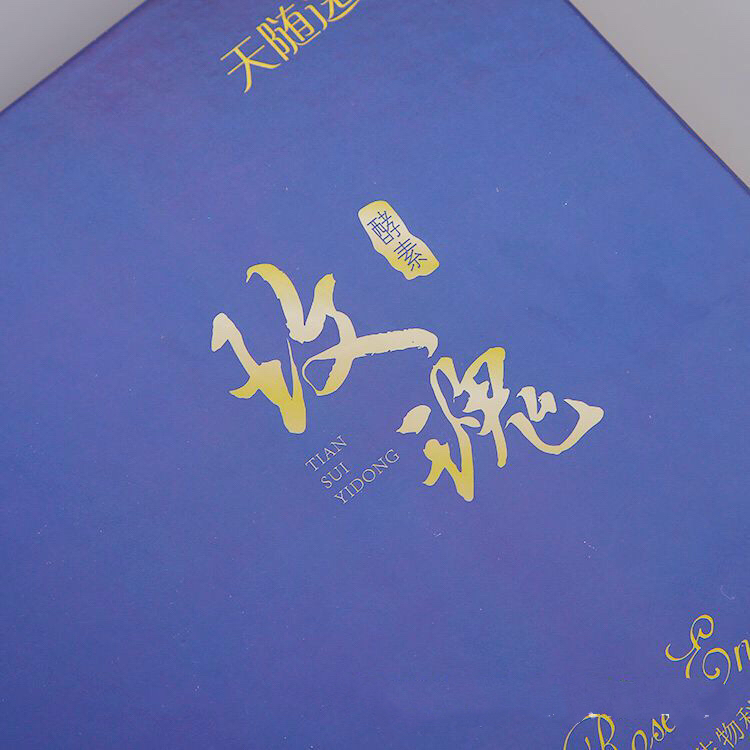 天随
酵素
玫瑰
TIAN
SUI
YIDONG
Rose En
生物科